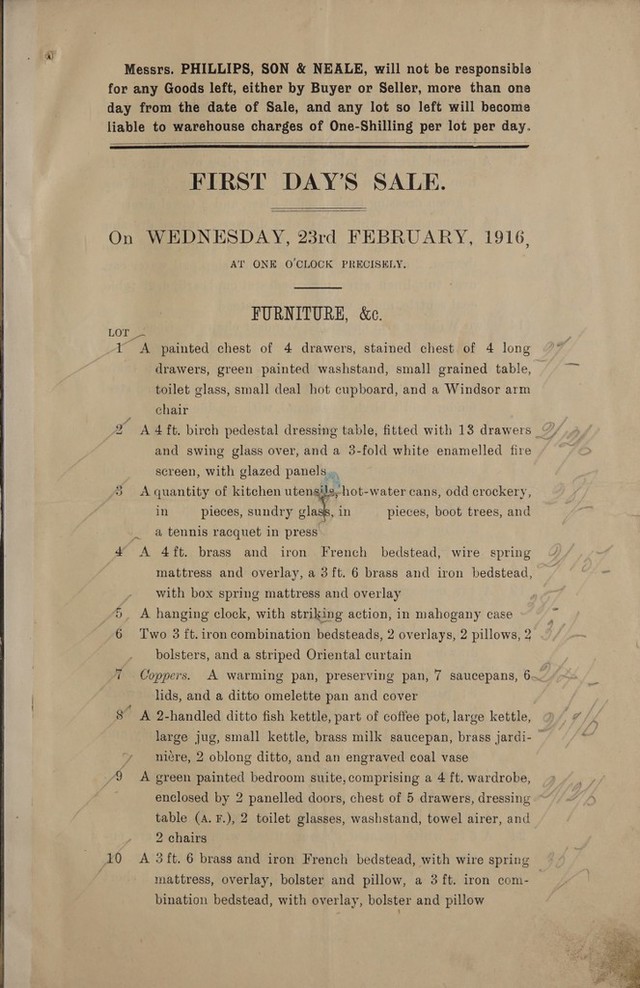 Messrs. PHILLIPS, SON & NEALE, will not be responsible
for any Goods left, either by Buyer or Seller, more than one
day from the date of Sale, and any lot so left will become
liable to warehouse charges of One-Shilling per lot per day.
FIRST DAY'S SALE.
On WEDNESDAY, 23rd FEBRUARY, 1916,
AT ONE O'CLOCK PRECISELY.
FURNITURE, &c.
LOT
1 A painted chest of 4 drawers, stained chest of 4 long
drawers, green painted washstand, small grained table,
toilet glass, small deal hot cupboard, and a Windsor arm
chair
2 A 4 ft. birch pedestal dressing table, fitted with 13 drawers
and swing glass over, and a 3-fold white enamelled fire
screen, with glazed panels
3 A quantity of kitchen utensils, hot-water cans, odd crockery,
in pieces, sundry glass, in pieces, boot trees, and
a tennis racquet in press
4 A 4 ft. brass and iron French bedstead, wire spring
mattress and overlay, a 3 ft. 6 brass and iron bedstead,
with box spring mattress and overlay
5 A hanging clock, with striking action, in mahogany case
6 Two 3 ft. iron combination bedsteads, 2 overlays, 2 pillows, 2
bolsters, and a striped Oriental curtain
7 Coppers. A warming pan, preserving pan, 7 saucepans, 6
lids, and a ditto omelette pan and cover
8 A 2-handled ditto fish kettle, part of coffee pot, large kettle,
large jug, small kettle, brass milk saucepan, brass jardi-
nière, 2 oblong ditto, and an engraved coal vase
9 A green painted bedroom suite, comprising a 4 ft. wardrobe,
enclosed by 2 panelled doors, chest of 5 drawers, dressing
table (A. F.), 2 toilet glasses, washstand, towel airer, and
2 chairs
10 A 3 ft. 6 brass and iron French bedstead, with wire spring
mattress, overlay, bolster and pillow, a 3 ft. iron com-
bination bedstead, with overlay, bolster and pillow